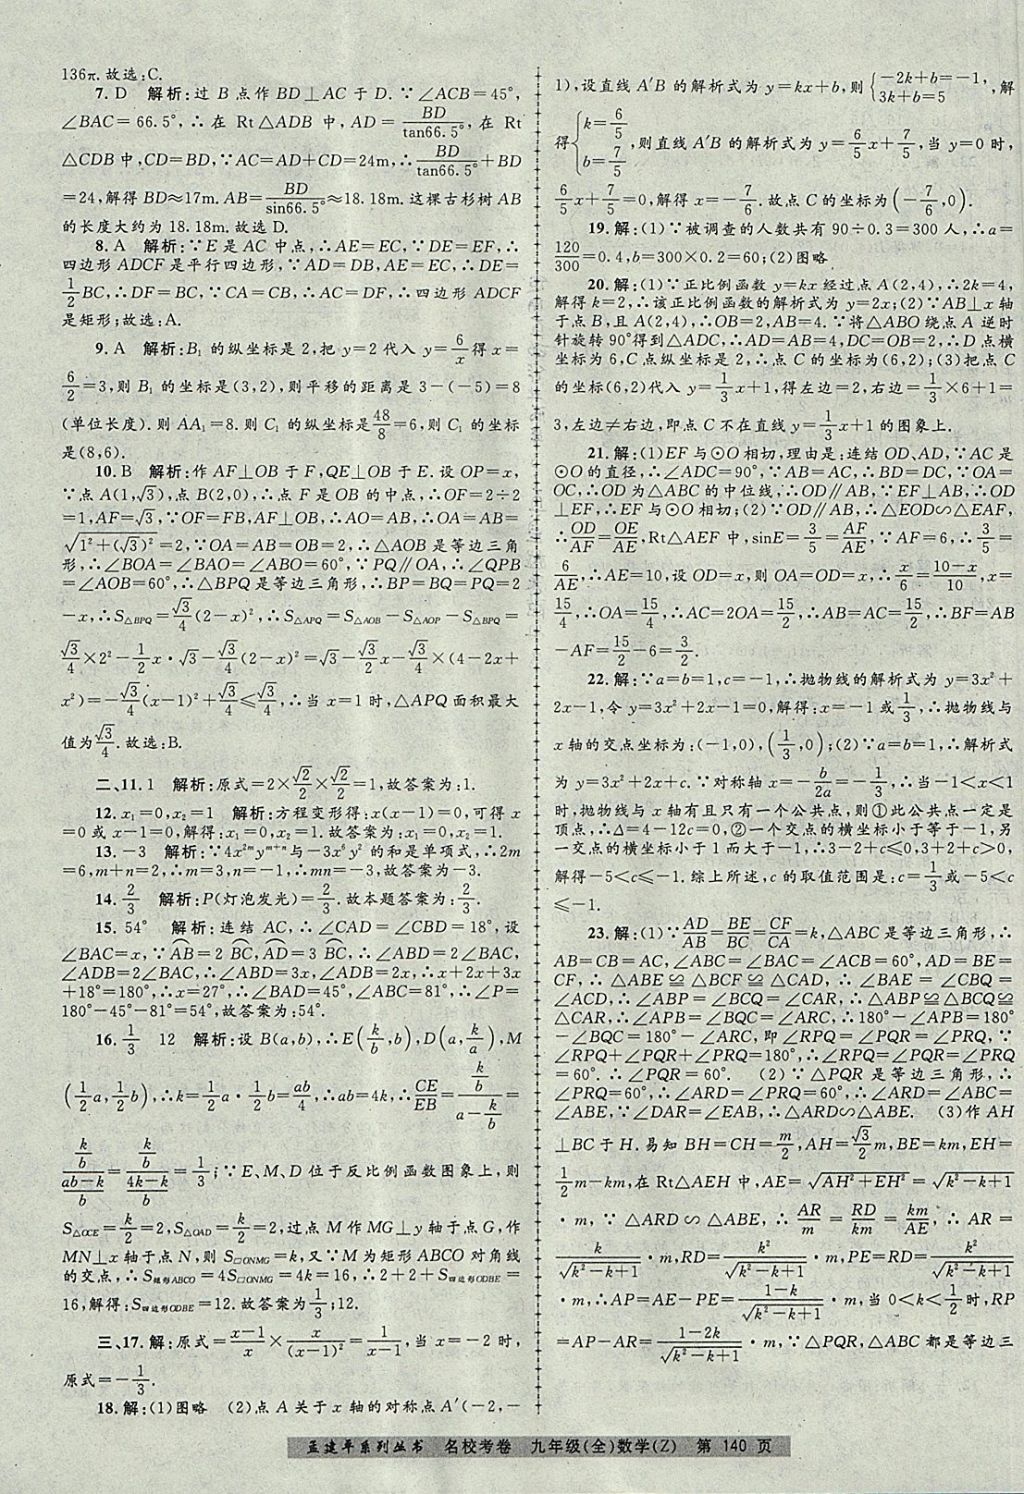 136π.故选:C.
7. D 解析:过 B 点作 BD⊥AC 于 D.∵∠ACB=45°,
∠BAC=66.5°,∴在 Rt△ADB 中,AD=BD/tan66.5°,在 Rt
△CDB中,CD=BD,∵AC=AD+CD=24m,∴BD/tan66.5°+BD
=24,解得 BD≈17m. AB=BD/sin66.5°≈18.18m.这棵古杉树AB
的长度大约为 18.18m.故选 D.
8. A 解析:∵E 是 AC 中点,∴AE=EC,∵DE=EF,∴
四边形 ADCF 是平行四边形,∵AD=DB,AE=EC,∴DE=
1/2BC,∴DF=BC,∵CA=CB,∴AC=DF,∴四边形 ADCF
是矩形;故选:A.
9. A 解析:B₁ 的纵坐标是 2,把 y=2 代入 y=6/x得 x=
6/2=3,则 B₁ 的坐标是(3,2),则平移的距离是 3-(-5)=8
(单位长度).则 AA₁=8.则 C₁ 的纵坐标是48/8=6,则 C₁ 的坐标
是(8,6).
10. B 解析:作 AF⊥OB 于 F,QE⊥OB 于 E.设 OP=x,
∵点 A(1,√3),点 B(2,0),∴点 F 是 OB 的中点,∴OF=2÷2
=1,AF=√3,∵OF=FB,AF⊥OB,∴AO=AB,∴OA=AB=
√(1²+(√3)²)=2,∵OA=AB=OB=2,∴△AOB 是等边三角
形,∴∠BOA=∠BAO=∠ABO=60°,∵PQ∥OA,∴∠QPB
=∠AOB=60°,∴△BPQ 是等边三角形,∴BP=BQ=PQ=2
-x,∴S△BPQ=√3/4(2-x)²,∴S△APQ=S△AOB-S△AOP-S△BPQ=
√3/4×2²-1/2x·√3-√3/4(2-x)²=√3-√3/2x-√3/4×(4-2x+
x²)=-√3/4(x-1)²+√3/4≤√3/4,∴当 x=1 时,△APQ 面积最大
值为√3/4.故选:B.
二、11. 1 解析:原式=2×√2/2×√2/2=1,故答案为:1.
12. x₁=0,x₂=1 解析:方程变形得:x(x-1)=0,可得 x
=0 或 x-1=0,解得:x₁=0,x₂=1.故答案为:x₁=0,x₂=1.
13. -3 解析:∵4x²ᵐyᵐ⁺ⁿ与-3x⁶y² 的和是单项式,∴2m
=6,m+n=2,∴m=3,n=-1,∴mn=-3,故答案为-3.
14. 2/3 解析:P(灯泡发光)=2/3.故本题答案为:2/3.
15. 54° 解析:连结 AC,∴∠CAD=∠CBD=18°,设
∠BAC=x,∵AB=2 BC,AD=3 BC,∴∠ADB=2∠BAC,
∠ADB=2∠BAC,∴∠ABD=3x,∠ADB=2x,∴x+2x+3x
+18°=180°,∴x=27°,∴∠BAD=45°,∠ABC=81°,∴∠P=
180°-45°-81°=54°,故答案为:54°.
16. 1/3 12 解析:设 B(a,b),∴E(k/b,b),D(a,k/a),M
(1/2a,1/2b),∴k=1/2a·1/2b=ab/4,∴ab=4k,∴CE/EB=(k/b)/(a-k/b)=
(k/b)/((ab-k)/b)=(k/b)/((4k-k)/b)=1/3;∵E、M、D 位于反比例函数图象上,则
S△OCE=k/2=2,S△OAD=k/2=2,过点 M 作MG⊥y 轴于点 G,作
MN⊥x 轴于点 N,则 S□ONMG=k,又∵M 为矩形 ABCO 对角线
的交点,∴S矩形ABCO=4S□ONMG=4k=16,∴2+2+S四边形ODBE=
16,解得:S四边形ODBE=12.故答案为:1/3;12.
三、17. 解:原式=(x-1)/x×x/(x-1)²=1/(x-1),当 x=-2 时,
原式=-1/3.
18. 解:(1)图略 (2)点 A 关于 x 轴的对称点 A′(-2,-
1),设直线 A′B 的解析式为 y=kx+b,则{-2k+b=-1, 3k+b=5 ,解
得{k=6/5 b=7/5,则直线 A′B 的解析式为 y=6/5x+7/5,当 y=0 时,
6/5x+7/5=0,解得 x=-7/6.故点 C 的坐标为(-7/6,0).
19. 解:(1)∵被调查的人数共有 90÷0.3=300 人,∴a=
120/300=0.4,b=300×0.2=60;(2)图略
20. 解:(1)∵正比例函数 y=kx 经过点 A(2,4),∴2k=4,
解得 k=2,∴该正比例函数的解析式为 y=2x;(2)∵AB⊥x 轴
于点 B,且 A(2,4),∴OB=2,AB=4.∵将△ABO 绕点 A 逆时
针旋转 90°得到△ADC,∴AD=AB=4,DC=OB=2,∴D 点横
坐标为 6,C 点纵坐标是 2,∴点 C 的坐标为(6,2);(3)把点 C
的坐标(6,2)代入 y=1/3x+1,得左边=2,右边=1/3×6+1=
3,左边≠右边,即点 C 不在直线 y=1/3x+1 的图象上.
21. 解:(1)EF 与⊙O 相切,理由是:连结 OD、AD,∵AC 是
⊙O 的直径,∴∠ADC=90°,∵AB=AC,∴BD=DC,∵OA=
OC,∴OD 为△ABC 的中位线,∴OD∥AB,∵EF⊥AB,∴OD
⊥EF,∴EF 与⊙O 相切;(2)∵OD∥AB,∴△EOD∽△EAF,
∴OD/AF=OE/AE,Rt△AEF 中,sinE=3/5=AF/AE,∵AF=6,∴3/5=
6/AE,∴AE=10,设 OD=x,则 OA=OD=x,∴x/6=(10-x)/10,x=
15/4,∴OA=15/4,∴AC=2OA=15/2,∴AB=AC=15/2,∴BF=AB
-AF=15/2-6=3/2.
22. 解:∵a=b=1,c=-1,∴抛物线的解析式为 y=3x²+
2x-1,令 y=3x²+2x-1=0,解得:x=-1 或1/3,∴抛物线与
x 轴的交点坐标为:(-1,0),(1/3,0);(2)∵a=b=1,∴解析式
为 y=3x²+2x+c.∵对称轴 x=-b/2a=-1/3,∴当-1<x<1
时,抛物线与 x 轴有且只有一个公共点,则①此公共点一定是
顶点,∴Δ=4-12c=0,②一个交点的横坐标小于等于-1,另
一交点的横坐标小于 1 而大于-1,∴3-2+c≤0,3+2+c>0,
解得-5<c≤-1.综上所述,c 的取值范围是:c=1/3或-5<c
≤-1.
23. 解:(1)∵AD/AB=BE/BC=CF/CA=k,△ABC 是等边三角形,∴
AB=CB=AC,∠ABC=∠BAC=∠ACB=60°,AD=BE=
CF,∴△ABE≌△BCF≌△CAD,∴∠BAE=∠CBQ=
∠ACD,∴∠ABP=∠BCQ=∠CAR,∴△ABP≌△BCQ≌
△CAR,∴∠APB=∠BQC=∠ARC,∴180°-∠APB=180°
-∠BQC=180°-∠ARC,即∠RPQ=∠PQR=∠PRQ,∵
∠RPQ+∠PQR+∠PRQ=180°,∴∠RPQ=∠PQR=∠PRQ
=60°.∴∠PQR=60°. (2)∵△PQR 是等边三角形,∴
∠PRQ=60°,∴∠ARD=∠PRQ=60°,∴∠ARD=∠ABC=
∠ABE,∵∠DAR=∠EAB,∴△ARD∽△ABE. (3)作 AH
⊥BC 于 H.易知 BH=CH=m/2,AH=√3/2m,BE=km,EH=
1/2m-km,在 Rt△AEH 中,AE=√(AH²+EH²)=√(k²-k+1)
·m,∵△ARD∽△ABE,∴AR/m=RD/km=km/AE,∴AR=
k/√(k²-k+1)·m,RD=k²/√(k²-k+1)·m,PE=RD=k²/√(k²-k+1)
·m,∴AP=AE-PE=(1-k)/√(k²-k+1)·m,当 0<k<1/2时,RP
=AP-AR=(1-2k)/√(k²-k+1)·m,∵△PQR,△ABC 都是等边三
孟建平系列丛书 名校考卷 九年级(全)数学(Z) 第 140 页